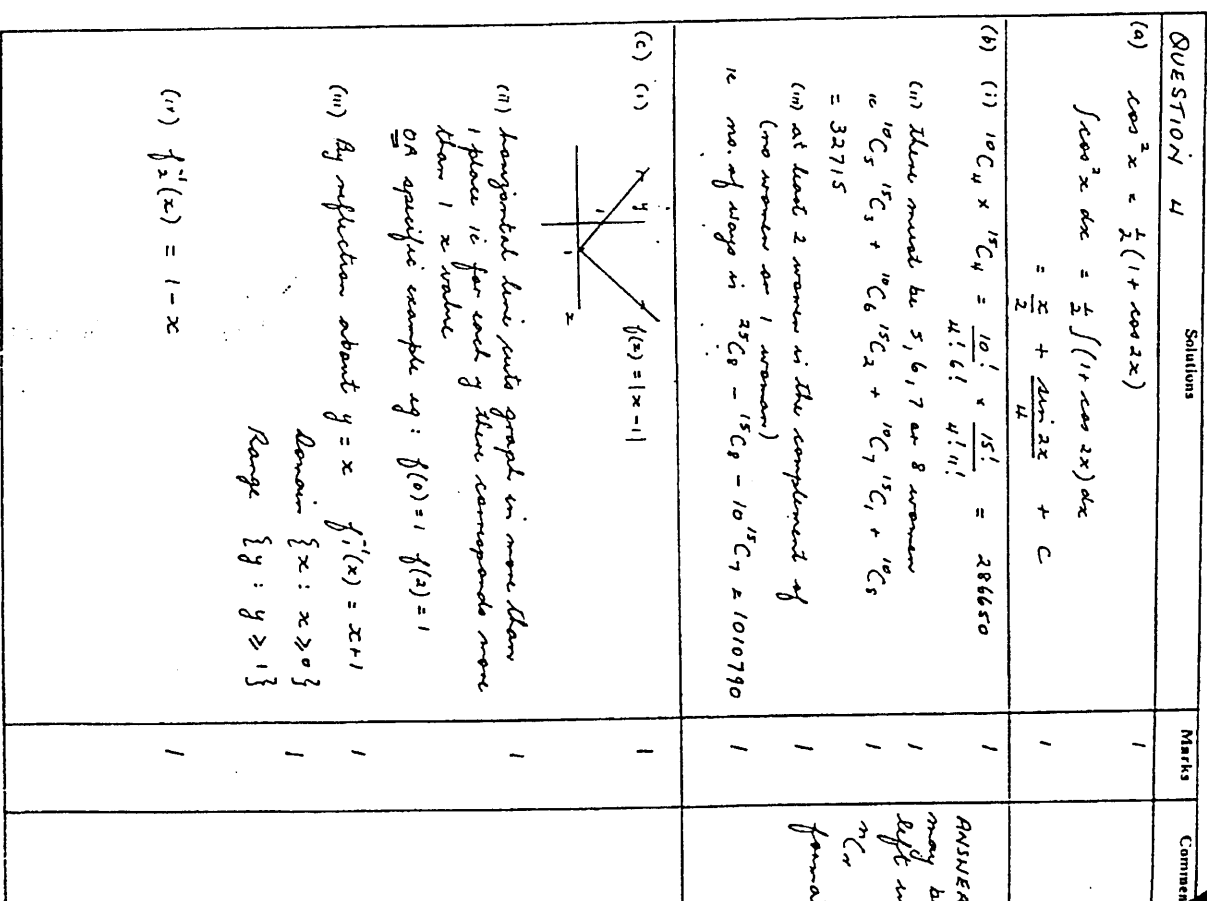 QUESTION 4
Solutions
Marks
Commen
(a) cos²x = ½(1 + cos 2x)
1
∫cos²x dx = ½∫(1 + cos 2x) dx
= x/2 + sin 2x/4 + C
1
(b) (i) ¹⁰C₄ × ¹⁵C₄ = 10!/4! 6! × 15!/4! 11! = 286650
1
(ii) there must be 5, 6, 7 or 8 women
1
ie ¹⁰C₅ ¹⁵C₃ + ¹⁰C₆ ¹⁵C₂ + ¹⁰C₇ ¹⁵C₁ + ¹⁰C₈
1
= 32715
(iii) at least 2 women is the complement of
1
(no women or 1 woman)
ie no. of ways is ²⁵C₈ - ¹⁵C₈ - 10 ¹⁵C₇ = 1010790
1
ANSWER
may b
left in
nCr
forma
(c) (i)
y
f(x) = |x-1|
1
1
x
1
(ii) horizontal line cuts graph in more than
1
1 place ie for each y there corresponds more
than 1 x value
OR specific example eg: f(0)=1 f(2)=1
(iii) By reflection about y = x f₁⁻¹(x) = x+1
1
Domain {x : x ≥ 0}
1
Range {y : y ≥ 1}
(iv) f₂⁻¹(x) = 1 - x
1